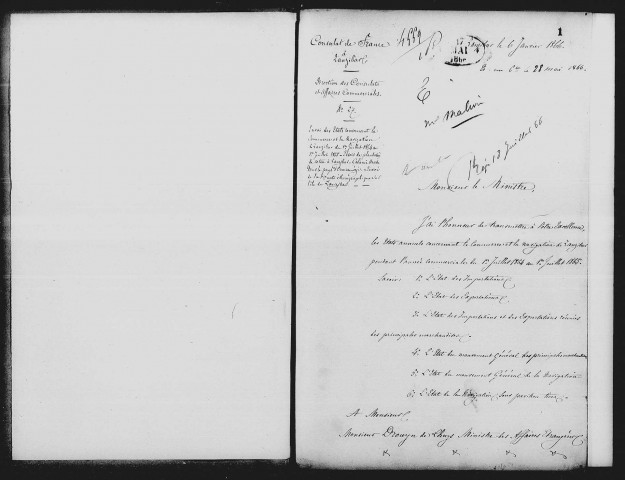 1
Consulat de France
à
Zanzibar
Direction des Consulats
et Affaires Commerciales.
N° 27
Envoi des Etats concernant le
Commerce et la Navigation
de Zanzibar du 1er Juillet 1864 au
1er Juillet 1865.
île de Zanzibar
4559
17
MAI
1866
le 6 Janvier 1866.
28 mai 1866.
13 Juillet 66
Monsieur le Ministre,
J'ai l'honneur de transmettre à Votre Excellence
les Etats annuels concernant le commerce et la navigation de Zanzibar
pendant l'année commerciale du 1er Juillet 1864 au 1er Juillet 1865.
Savoir: 1° L'Etat des Importations
2° L'Etat des Exportations
3° L'Etat des Importations et des Exportations réunies
des principales marchandises
4° L'Etat du mouvement Général des principales marchandises
5° L'Etat du mouvement Général de la Navigation
6° L'Etat de la Navigation sous pavillon tiers
A Monsieur
Monsieur Drouyn de Lhuys Ministre des Affaires Etrangères